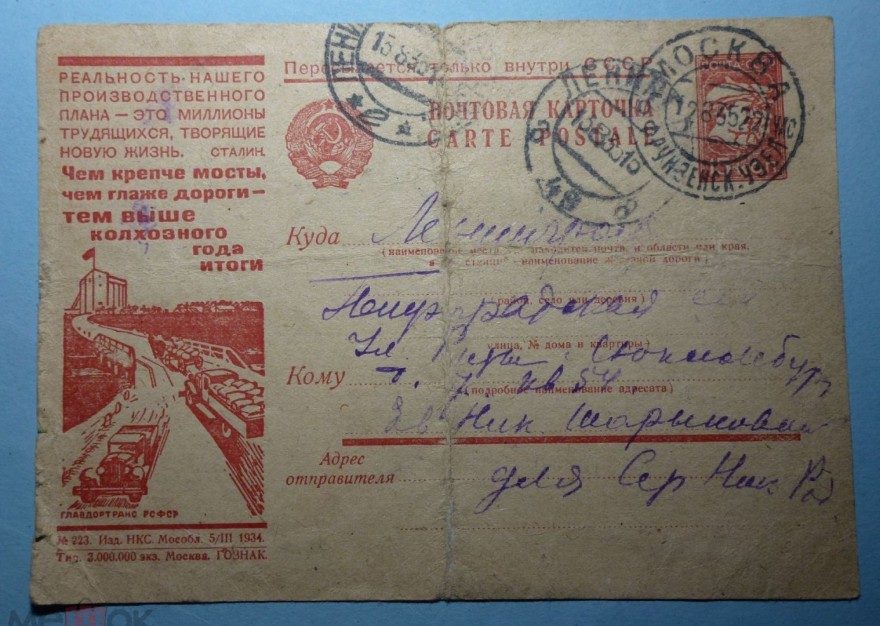 РЕАЛЬНОСТЬ НАШЕГО
ПРОИЗВОДСТВЕННОГО
ПЛАНА — ЭТО МИЛЛИОНЫ
ТРУДЯЩИХСЯ, ТВОРЯЩИЕ
НОВУЮ ЖИЗНЬ. СТАЛИН.
Чем крепче мосты,
чем глаже дороги—
тем выше
колхозного
года
итоги
ГЛАВДОРТРАНС РСФСР
№ 223. Изд. НКС. Мособл. 5/III 1934.
Тир. 3.000.000 экз. Москва. ГОЗНАК.
Пересылается только внутри СССР
ПОЧТОВАЯ КАРТОЧКА
CARTE POSTALE
ЛЕНИ
13835
ЛЕНИНГРАД
12 8 35 15
МОСКВА
12835 22 ЧАС
ФРУНЗЕНСК. УЗЕЛ
ПОЧТА
Куда Ленинград
(наименование места, где находится почта, и области или края,
а станции—наименование железной дороги)
(район, село или деревня)
ул. Розы
(улица, № дома и квартиры)
Кому
кв 54
(подробное наименование адресата)
Ник Шарыковой
Адрес
отправителя
для Сер Ник